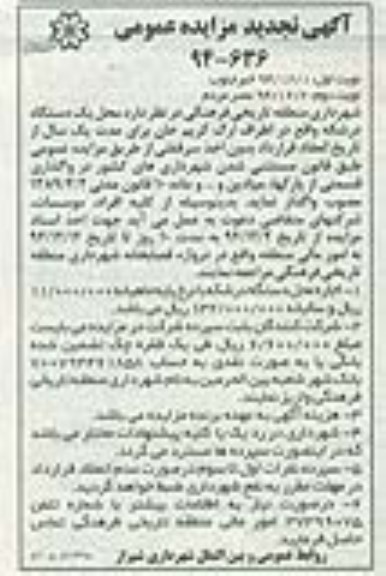 آگهی تجدید مزایده عمومی
۹۴-۶۳۶
شهرداری منطقه تاریخی فرهنگی در نظر دارد محل یک دستگاه
درشکه واقع در اطراف ارگ کریم خان برای مدت یک سال از
تاریخ انعقاد قرارداد بدون اخذ سرقفلی از طریق مزایده عمومی
طبق قانون مستثنی شدن شهرداری های کشور در واگذاری
قسمتی از پارکها، میادین و ... و ماده ۱۰ قانون مدنی
مصوب واگذار نماید. بدینوسیله از کلیه افراد، موسسات،
شرکتهای متقاضی دعوت به عمل می آید جهت اخذ اسناد
مزایده از تاریخ به مدت ۱۰ روز تا تاریخ
به امور مالی منطقه واقع در دروازه شهرداری منطقه
تاریخی فرهنگی مراجعه نمایند.
۱- اجاره محل دستگاه درشکه با نرخ پایه ماهیانه ۱۱/۰۰۰/۰۰۰
ریال و سالیانه ۱۳۲/۰۰۰/۰۰۰ ریال می باشد.
۲- شرکت کنندگان بابت سپرده شرکت در مزایده می بایست
مبلغ ریال طی یک فقره چک تضمین شده
بانکی یا به صورت نقدی به حساب
بانک شهر شعبه بین الحرمین به نام شهرداری منطقه تاریخی
فرهنگی واریز نمایند.
۳- هزینه آگهی به عهده برنده مزایده می باشد.
۴- شهرداری در رد یک یا کلیه پیشنهادات مختار می باشد
که در اینصورت سپرده ها مسترد می گردد.
۵- سپرده نفرات اول تا سوم در صورت عدم انعقاد قرارداد
در مهلت مقرر به نفع شهرداری ضبط خواهد گردید.
۶- در صورت نیاز به اطلاعات بیشتر با شماره تلفن
امور مالی منطقه تاریخی فرهنگی تماس
حاصل فرمایید.
روابط عمومی و بین الملل شهرداری شیراز